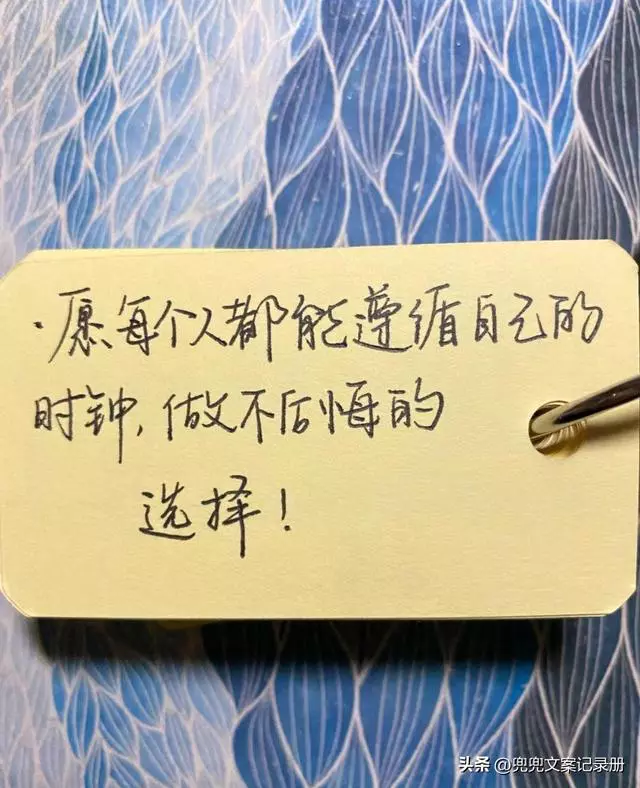 ·愿每个人都能遵循自己的
时钟,做不后悔的
选择!
头条 @兜兜文案记录册